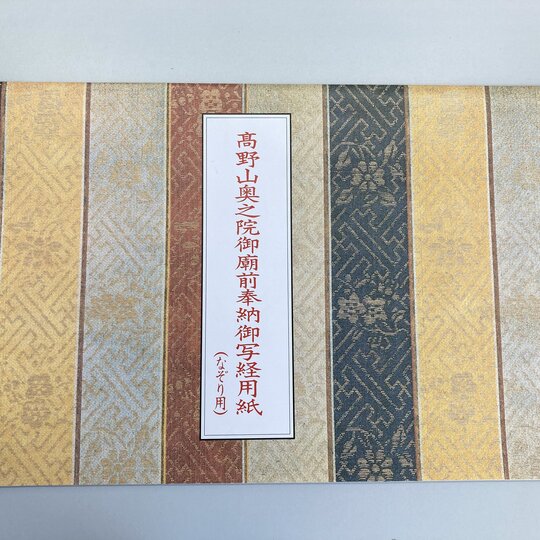 髙野山奥之院御廟前奉納御写経用紙
(なぞり用)